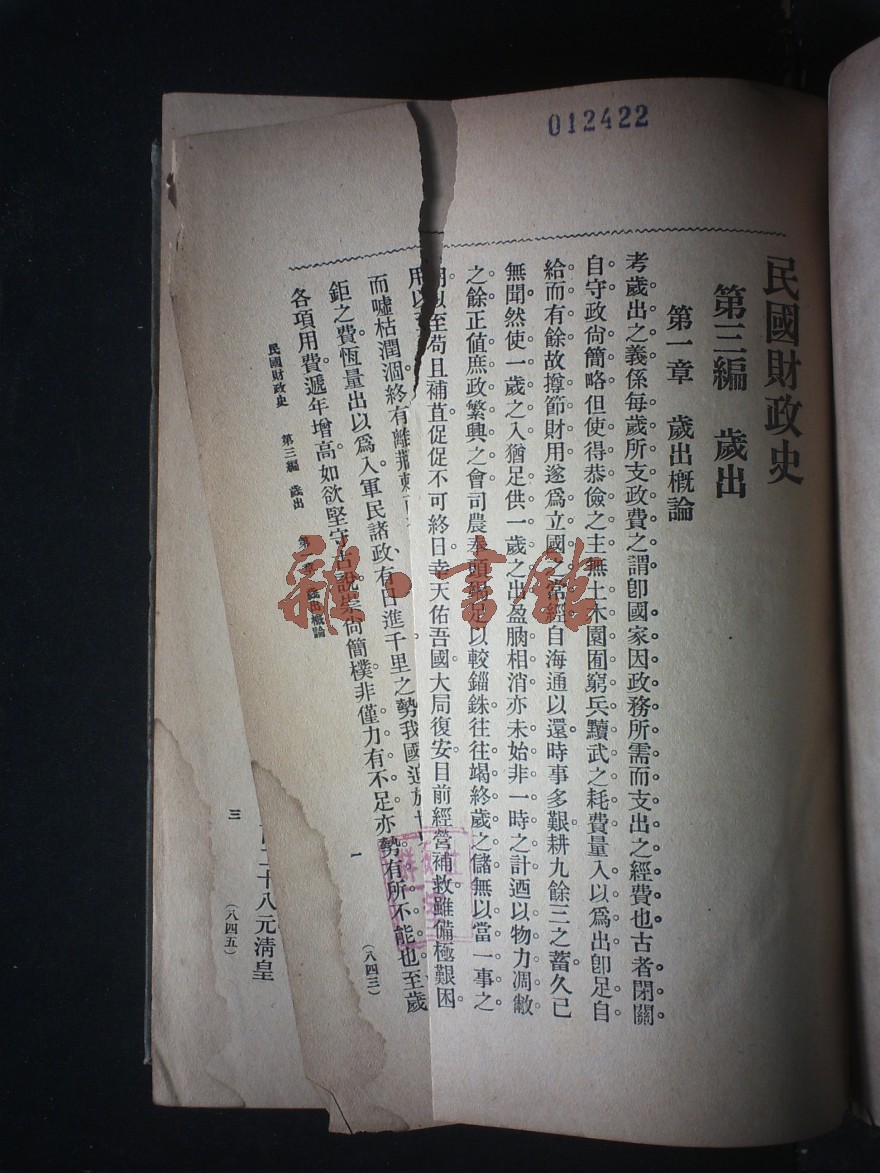 012422
民國財政史
第三編 歲出
第一章 歲出概論
考歲出之義係每歲所支政費之謂卽國家因政務所需而支出之經費也古者閉關
自守政尙簡略但使得恭儉之主無土木園囿窮兵黷武之耗費量入以爲出卽足自
給而有餘故撙節財用遂爲立國之常經自海通以還時事多艱耕九餘三之蓄久已
無聞然使一歲之入猶足供一歲之出盈朒相消亦未始非一時之計迺以物力凋敝
之餘正値庶政繁興之會司農泰頭竭足以較錙銖往往竭終歲之儲無以當一事之
用以至苟且補苴促促不可終日幸天佑吾國大局復安目前經營補救雖備極艱困
而噓枯潤涸終有
諸政有日進千里之勢我國
鉅之費恆量出以爲入軍民
守古說崇尙簡樸非僅力有不足亦勢有所不能也至歲
各項用費遞年增高如欲堅
民國財政史 第三編 歲出 第一章 歲出概論
一
(八四三)
二十八元淸皇
三
(八四五)
雜·書館